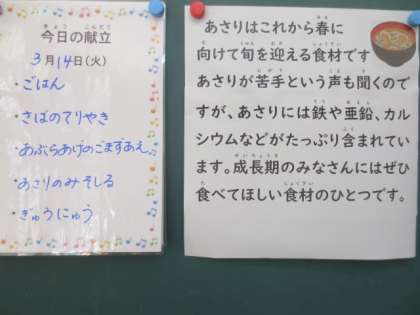 今日の献立
3月14日(火)
・ごはん
・さばのてりやき
・あぶらあげのごまずあえ
・あさりのみそしる
・ぎゅうにゅう
あさりはこれから春に
向けて旬を迎える食材です
あさりが苦手という声も聞くので
すが、あさりには鉄や亜鉛、カル
シウムなどがたっぷり含まれてい
ます。成長期のみなさんにはぜひ
食べてほしい食材のひとつです。